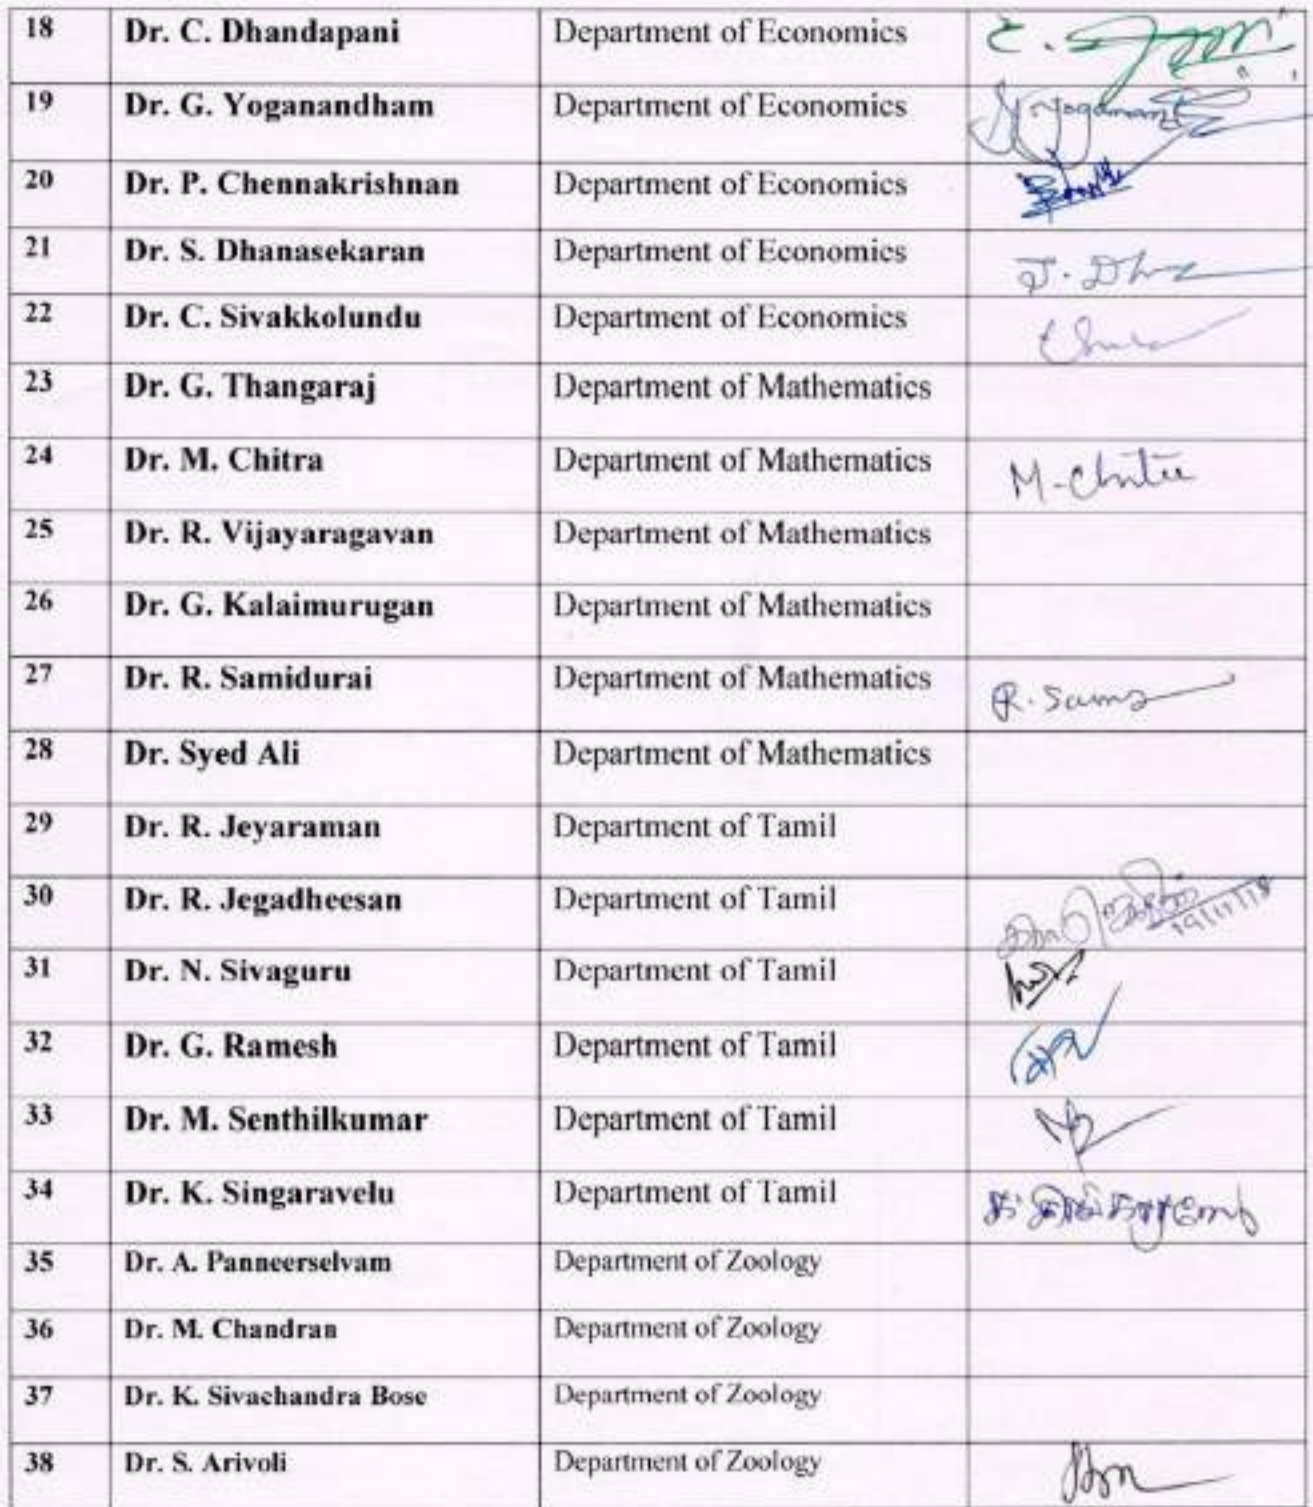 18 Dr. C. Dhandapani Department of Economics
19 Dr. G. Yoganandham Department of Economics
20 Dr. P. Chennakrishnan Department of Economics
21 Dr. S. Dhanasekaran Department of Economics
22 Dr. C. Sivakkolundu Department of Economics
23 Dr. G. Thangaraj Department of Mathematics
24 Dr. M. Chitra Department of Mathematics M-Chitra
25 Dr. R. Vijayaragavan Department of Mathematics
26 Dr. G. Kalaimurugan Department of Mathematics
27 Dr. R. Samidurai Department of Mathematics R. Sam
28 Dr. Syed Ali Department of Mathematics
29 Dr. R. Jeyaraman Department of Tamil
30 Dr. R. Jegadheesan Department of Tamil 19/11/18
31 Dr. N. Sivaguru Department of Tamil
32 Dr. G. Ramesh Department of Tamil
33 Dr. M. Senthilkumar Department of Tamil
34 Dr. K. Singaravelu Department of Tamil
35 Dr. A. Panneerselvam Department of Zoology
36 Dr. M. Chandran Department of Zoology
37 Dr. K. Sivachandra Bose Department of Zoology
38 Dr. S. Arivoli Department of Zoology